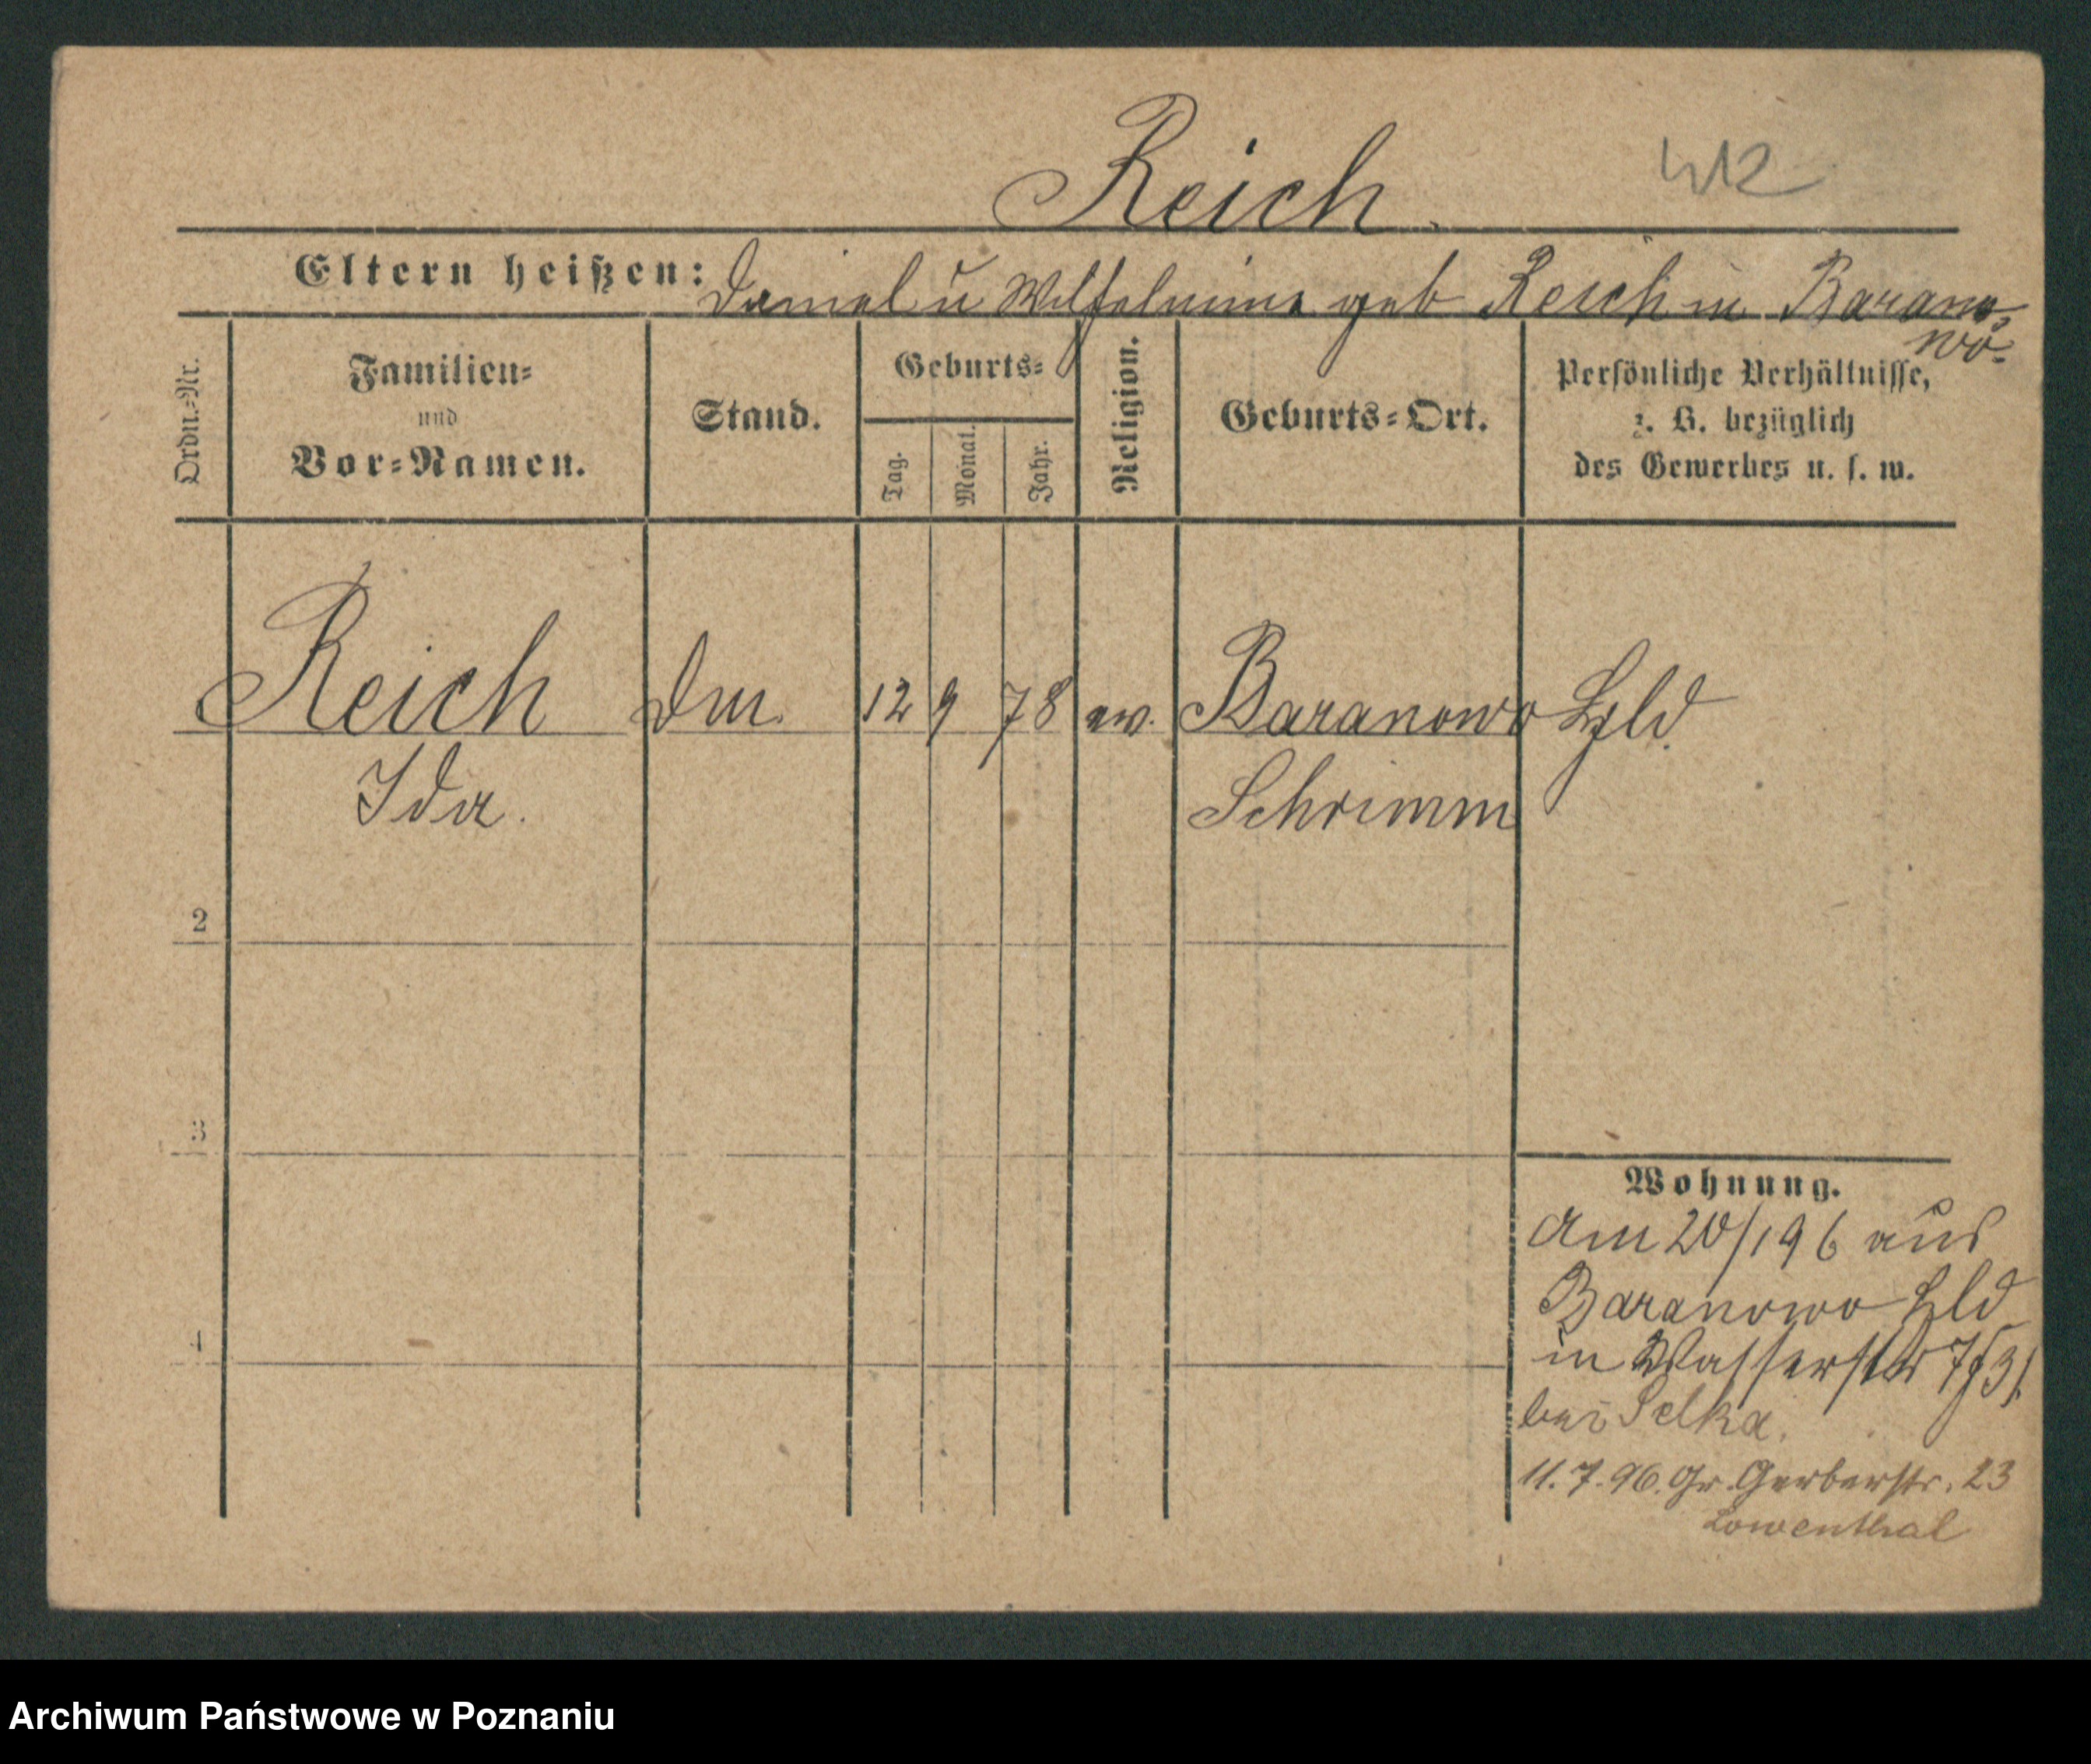 Reich.
412
Eltern heißen: Daniel u Wilhelmine geb Reich in Barano=
wo.
Ordn.=Nr.
Familien=
und
Vor=Namen.
Stand.
Geburts=
Tag.
Monat.
Jahr.
Religion.
Geburts=Ort.
Persönliche Verhältnisse,
z. B. bezüglich
des Gewerbes u. s. w.
Reich Dm. 12 9 78 ev. Baranowo Hld.
Ida. Schrimm
2
3
4
Wohnung.
Am 20/1 96 aus
Baranowo Hld
in Wasserstr
bei Selka.
11.7.96. Gr. Gerberstr. 23
Lowenthal
Archiwum Państwowe w Poznaniu